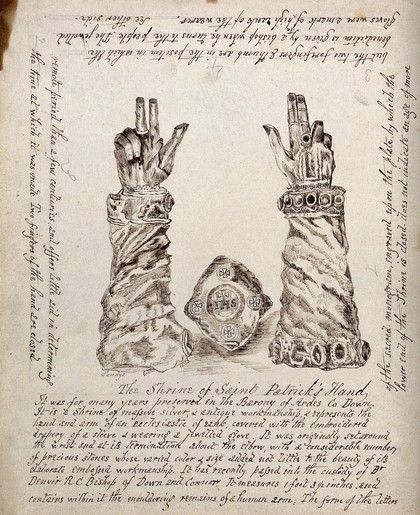 IHS
The Shrine of Saint Patrick's Hand,
It was for many years preserved in the Barony of Ardes Co Down.
It is a Shrine of massive silver, of antique workmanship, & represents the
hand and arm of an ecclesiastic of rank, covered with the embroidered
drapery of a sleeve & wearing a jewelled glove. It was originally set round
the wrist and at its termination about the elbow, with a considerable number
of precious stones whose varied color & size added not little to the beauty of its
elaborate embossed workmanship. It has recently passed into the custody of Dr
Denvir R.C. Bishop of Down and Connor. It measures 1 foot 3½ inches and
contains within it the mouldering remains of a human arm; The form of the letters
of the second monogram, engraved upon the plate by which the
lower end of the Shrine is closed does not indicate an age of more
remote period than a few centuries and offers little aid in determining
the time at which it was made. Two fingers of the hand are closed
but the two forefingers & thumb are in the position in which the
benediction is given by a bishop when he turns to the people. The jewelled
gloves were a mark of high rank of the wearer. See other side.